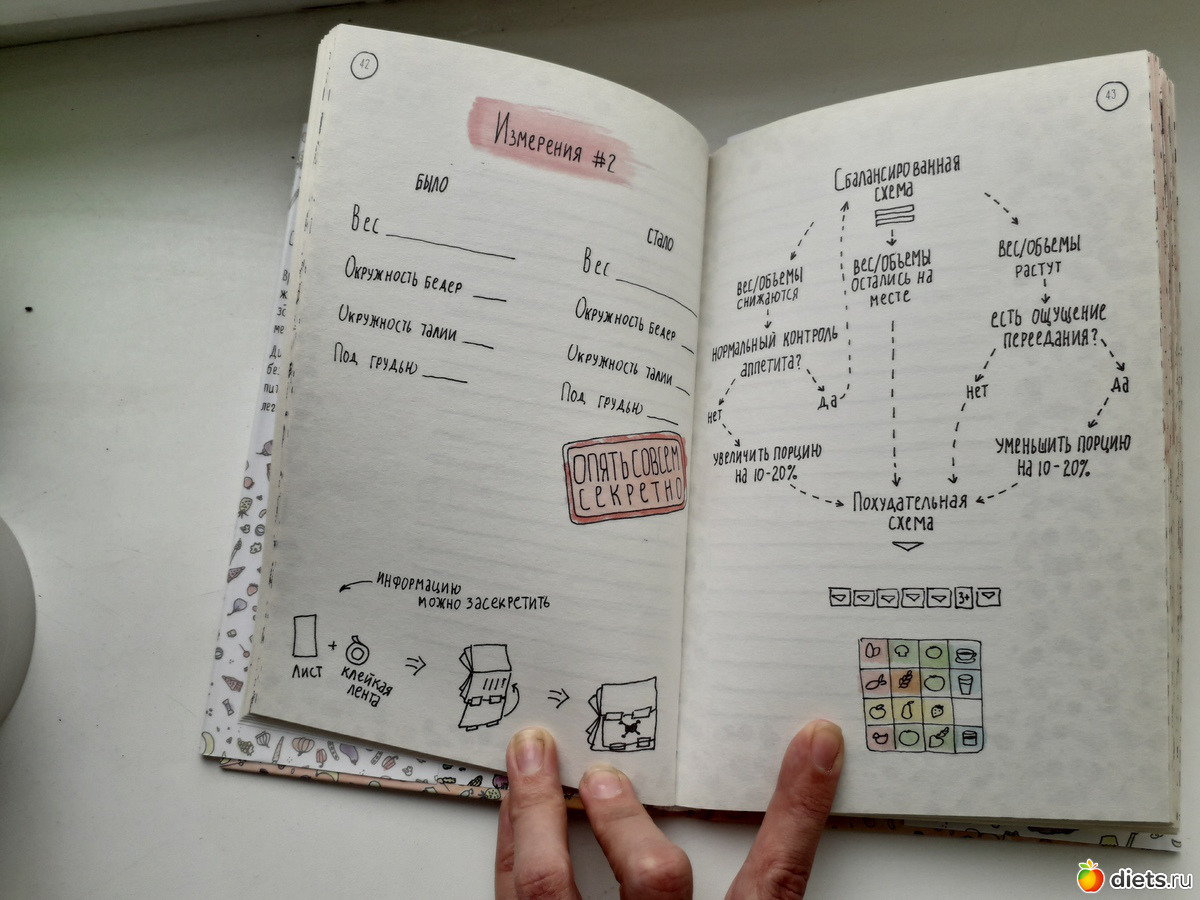 42
Измерения #2
БЫЛО
Вес
Окружность бедер
Окружность талии
Под грудью
СТАЛО
Вес
Окружность бедер
Окружность талии
Под грудью
ОПЯТЬ СОВСЕМ
СЕКРЕТНО
ИНФОРМАЦИЮ
МОЖНО ЗАСЕКРЕТИТЬ
ЛИСТ
+
КЛЕЙКАЯ
ЛЕНТА
43
Сбалансированная
схема
ВЕС/ОБЪЕМЫ
СНИЖАЮТСЯ
НОРМАЛЬНЫЙ КОНТРОЛЬ
АППЕТИТА?
НЕТ
ДА
УВЕЛИЧИТЬ ПОРЦИЮ
НА 10-20%
ВЕС/ОБЪЕМЫ
ОСТАЛИСЬ НА
МЕСТЕ
ВЕС/ОБЪЕМЫ
РАСТУТ
ЕСТЬ ОЩУЩЕНИЕ
ПЕРЕЕДАНИЯ?
НЕТ
ДА
УМЕНЬШИТЬ ПОРЦИЮ
НА 10-20%
Похудательная
схема
3+
diets.ru